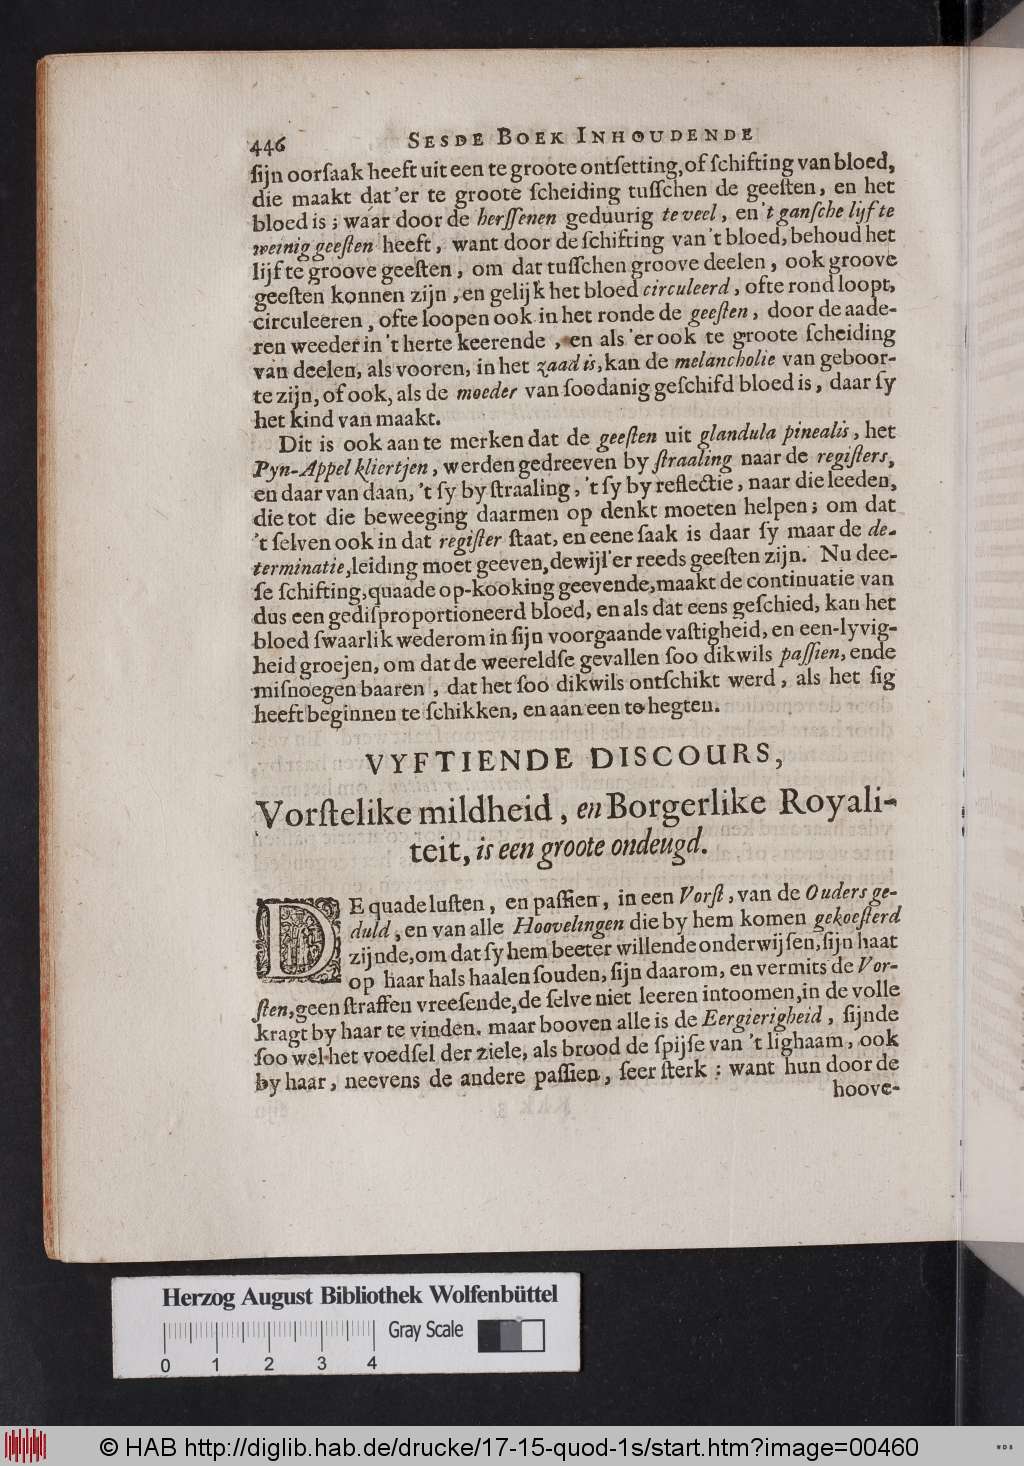 446 SESDE BOEK INHOUDENDE
ſijn oorſaak heeft uit een te groote ontſetting, of ſchifting van bloed,
die maakt dat 'er te groote ſcheiding tuſſchen de geeſten, en het
bloed is; waar door de herſſenen geduurig te veel, en 't ganſche lijf te
weinig geeſten heeft, want door de ſchifting van 't bloed, behoud het
lijf te groove geeſten, om dat tuſſchen groove deelen, ook groove
geeſten konnen zijn, en gelijk het bloed circuleerd, ofte rond loopt,
circuleeren, ofte loopen ook in het ronde de geeſten, door de aade-
ren weeder in 't herte keerende, en als 'er ook te groote ſcheiding
van deelen, als vooren, in het zaad is, kan de melancholie van geboor-
te zijn, of ook, als de moeder van ſoodanig geſchifd bloed is, daar ſy
het kind van maakt.
Dit is ook aan te merken dat de geeſten uit glandula pinealis, het
Pyn-Appel kliertjen, werden gedreeven by ſtraaling naar de regiſters,
en daar van daan, 't ſy by ſtraaling, 't ſy by reflectie, naar die leeden,
die tot die beweeging daarmen op denkt moeten helpen; om dat
't ſelven ook in dat regiſter ſtaat, en eene ſaak is daar ſy maar de de-
terminatie, leiding moet geeven, dewijl 'er reeds geeſten zijn. Nu dee-
ſe ſchifting, quaade op-kooking geevende, maakt de continuatie van
dus een gediſproportioneerd bloed, en als dat eens geſchied, kan het
bloed ſwaarlik wederom in ſijn voorgaande vaſtigheid, en een-lyvig-
heid groejen, om dat de weereldſe gevallen ſoo dikwils paſſien, ende
miſnoegen baaren, dat het ſoo dikwils ontſchikt werd, als het ſig
heeft beginnen te ſchikken, en aan een te hegten.
VYFTIENDE DISCOURS,
Vorſtelike mildheid, en Borgerlike Royali-
teit, is een groote ondeugd.
DE quade luſten, en paſſien, in een Vorſt, van de Ouders ge-
duld, en van alle Hoovelingen die by hem komen gekoeſterd
zijnde, om dat ſy hem beeter willende onderwijſen, ſijn haat
op haar hals haalen ſouden, ſijn daarom, en vermits de Vor-
ſten, geen ſtraffen vreeſende, de ſelve niet leeren intoomen, in de volle
kragt by haar te vinden. maar booven alle is de Eergierigheid, ſijnde
ſoo wel het voedſel der ziele, als brood de ſpijſe van 't lighaam, ook
by haar, neevens de andere paſſien, ſeer ſterk: want hun door de
hoove-
Herzog August Bibliothek Wolfenbüttel
Gray Scale
0 1 2 3 4
© HAB http://diglib.hab.de/drucke/17-15-quod-1s/start.htm?image=00460